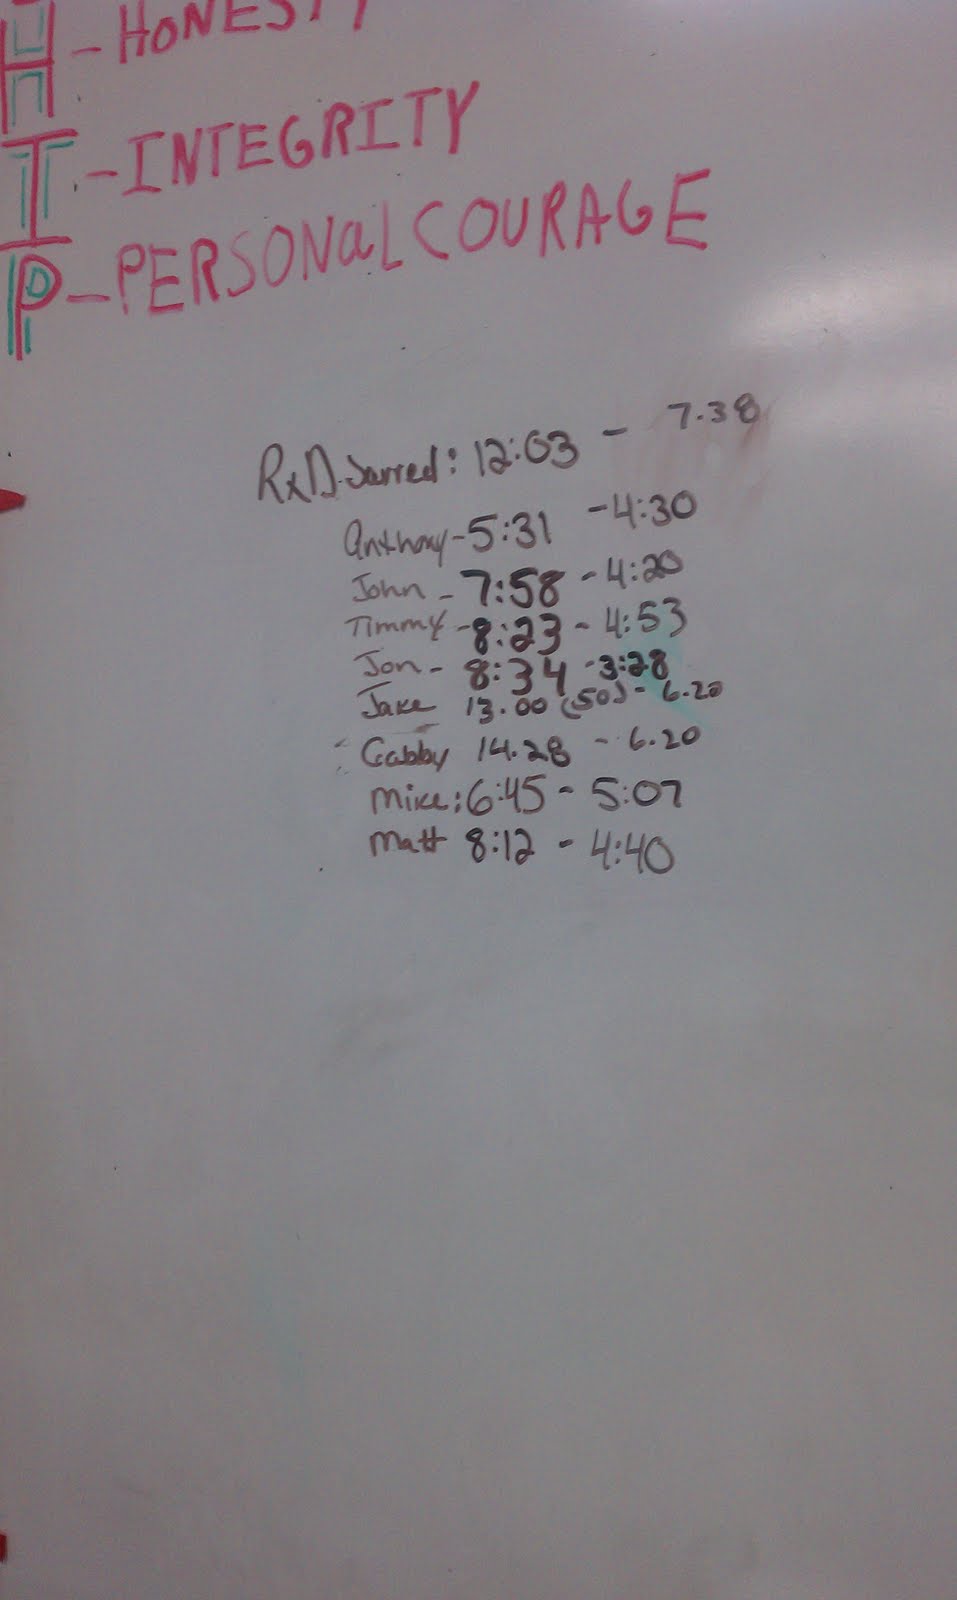 H - HONESTY
I - INTEGRITY
P - PERSONAL COURAGE
RxD. Jarred: 12:03 - 7.38
Anthony - 5:31 - 4:30
John - 7:58 - 4:20
Timmy - 8:23 - 4:53
Jon - 8:34 - 3:28
Jake 13.00 (50) - 6.20
Gabby 14.28 - 6.20
Mike: 6:45 - 5:07
Matt 8:12 - 4:40